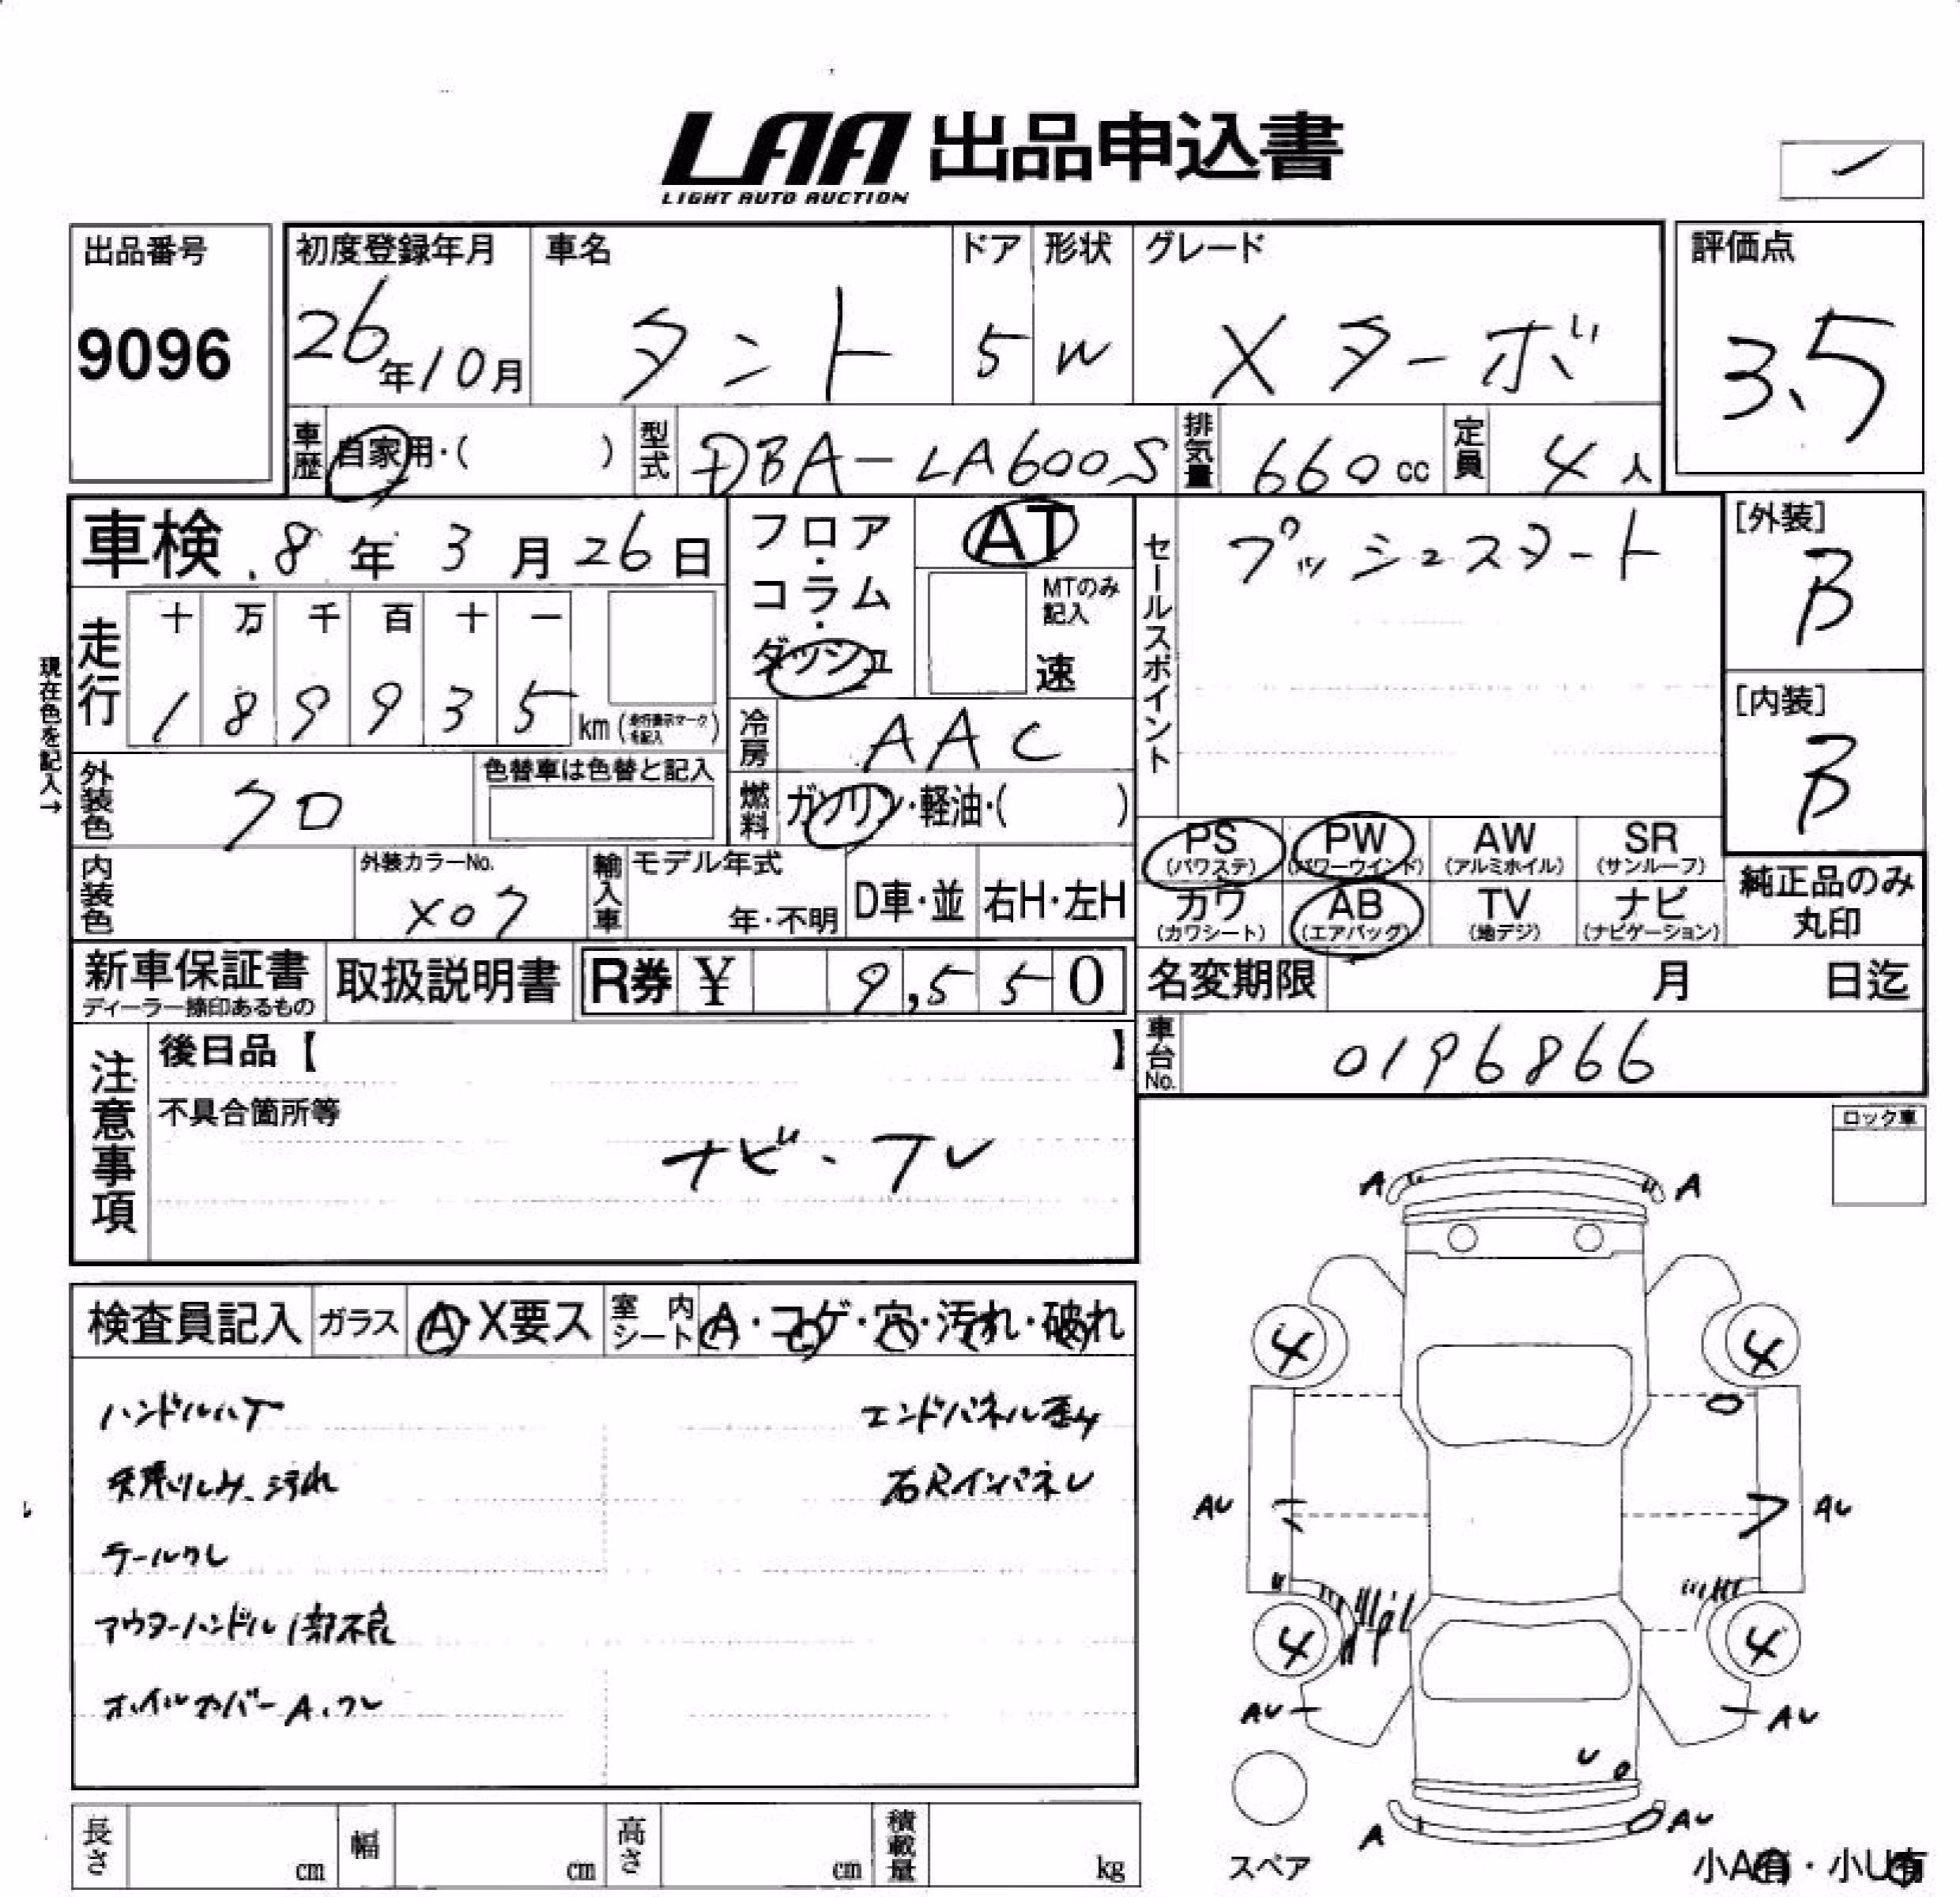 LAA 出品申込書
LIGHT AUTO AUCTION
出品番号
9096
初度登録年月
26年10月
車名
タント
ドア
5
形状
W
グレード
Xターボ
評価点
3.5
車歴
自家用・( )
型式
DBA-LA600S
排気量
660cc
定員
4人
車検 8年3月26日
現在色を記入→
走行
十 万 千 百 十 一
1 8 9 9 3 5 km (走行表示マークを記入)
フロア・コラム・ダッシュ
AT
MTのみ記入
速
冷房
AAC
燃料
ガソリン・軽油・( )
セールスポイント
プッシュスタート
[外装]
B
[内装]
B
外装色
クロ
色替車は色替と記入
内装色
外装カラーNo.
X07
輸入車
モデル年式
年・不明
D車・並
右H・左H
PS
(パワステ)
PW
(パワーウインド)
AW
(アルミホイル)
SR
(サンルーフ)
カワ
(カワシート)
AB
(エアバッグ)
TV
(地デジ)
ナビ
(ナビゲーション)
純正品のみ
丸印
新車保証書
ディーラー捺印あるもの
取扱説明書
R券 ¥ 9,550
名変期限 月 日迄
車台No.
0196866
注意事項
後日品【 】
不具合箇所等
ナビ・テレ
ロック車
検査員記入
ガラス
A・X要ス
室内シート
A・コゲ・穴・汚れ・破れ
ハンドルハゲ
天張りしみ、汚れ
テールワレ
アウターハンドル1部不良
ホイルカバーA、ワレ
エンドパネル歪み
右Rインパネレ
A A
4 4
AU AU
4 4
AU AU
U
A AU
スペア
小A有・小U有
長さ cm
幅 cm
高さ cm
積載量 kg